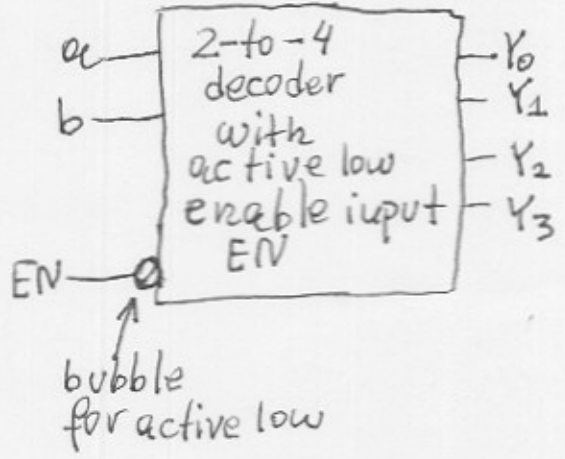 a
b
2-to-4
decoder
with
active low
enable input
EN
Y0
Y1
Y2
Y3
EN
bubble
for active low